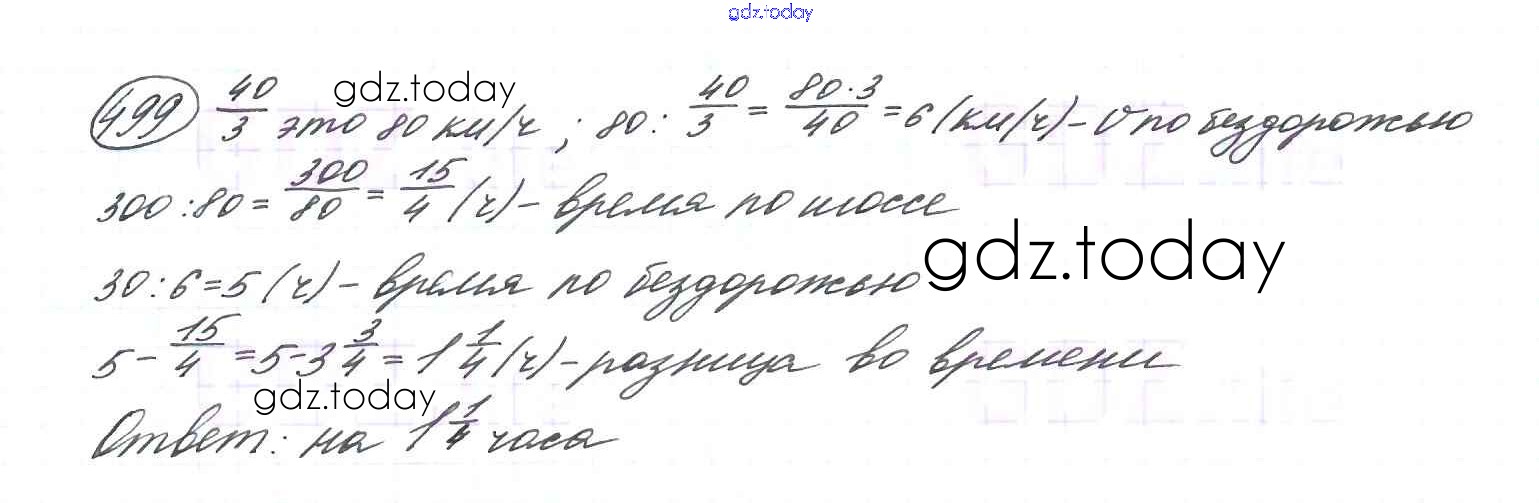 gdz.today
499 40/3 это 80 км/ч ; 80 : 40/3 = 80·3/40 = 6 (км/ч) – v по бездорожью
gdz.today
300 : 80 = 300/80 = 15/4 (ч) – время по шоссе
gdz.today
30 : 6 = 5 (ч) – время по бездорожью
5 – 15/4 = 5 – 3 3/4 = 1 1/4 (ч) – разница во времени
gdz.today
Ответ: на 1 1/4 часа